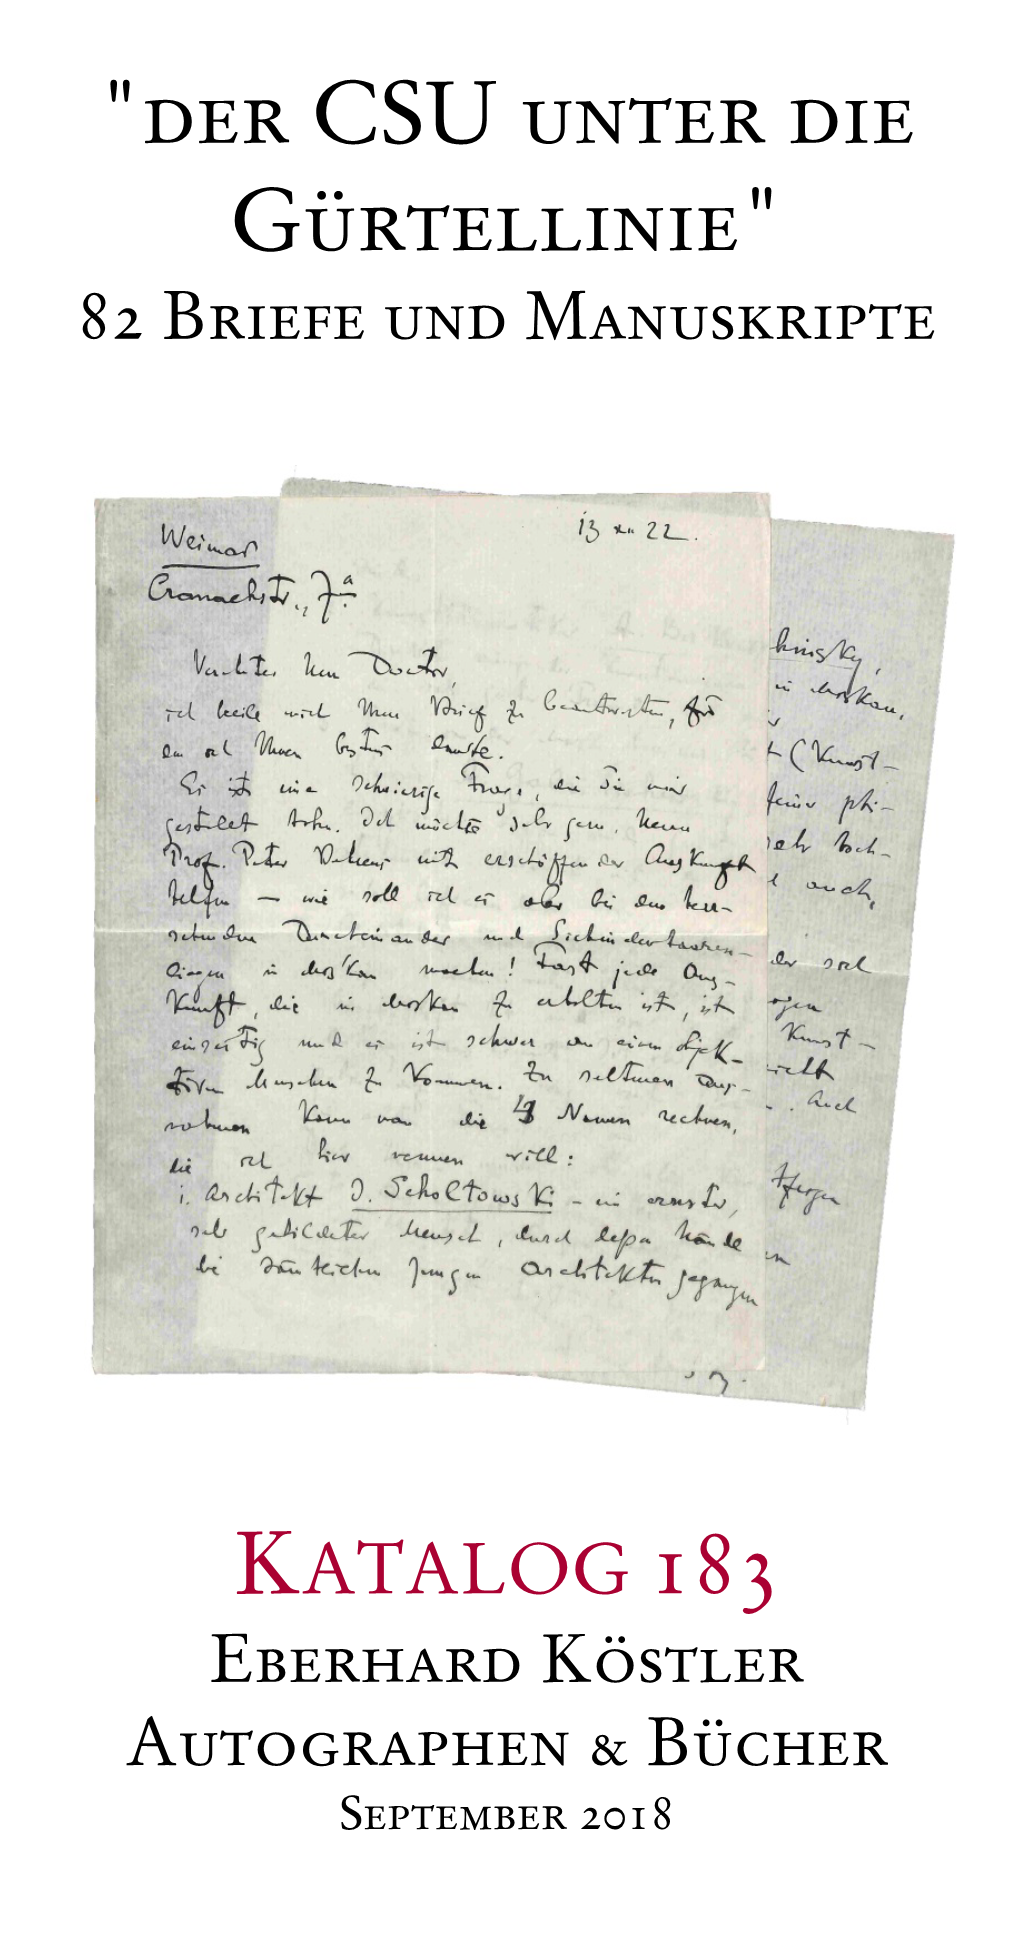 "der CSU unter die
Gürtellinie"
82 Briefe und Manuskripte
Weimar
13 XII 22.
Cranachstr., 7a
Verehrter Herr Doctor,
ich beeile mich Ihren Brief zu beantworten, für
den ich Ihnen bestens danke.
Es ist eine schwierige Frage, die Sie mir
gestellt haben. Ich möchte sehr gern, Herrn
Prof. Peter Behrens mit erschöpfender Auskunft
helfen — wie soll ich es aber bei dem herr-
schenden Durcheinander und Sichindenhaaren-
liegen in Moskau machen! Fast jede Aus-
kunft, die in Moskau zu erhalten ist, ist
einseitig und es ist schwer an einen objek-
tiven Menschen zu kommen. Zu seltenen Aus-
nahmen kann man die Namen rechnen,
die ich hier nennen will:
1. Architekt J. Scholtowski – ein ernster,
sehr gebildeter Mensch, durch dessen Hände
die sämtlichen jungen Architekten gegangen
kinsky,
in Moskau,
t (Kunst-
sehr hoch-
auch,
der sich
Kunst-
Auch
Katalog 183
Eberhard Köstler
Autographen & Bücher
September 2018